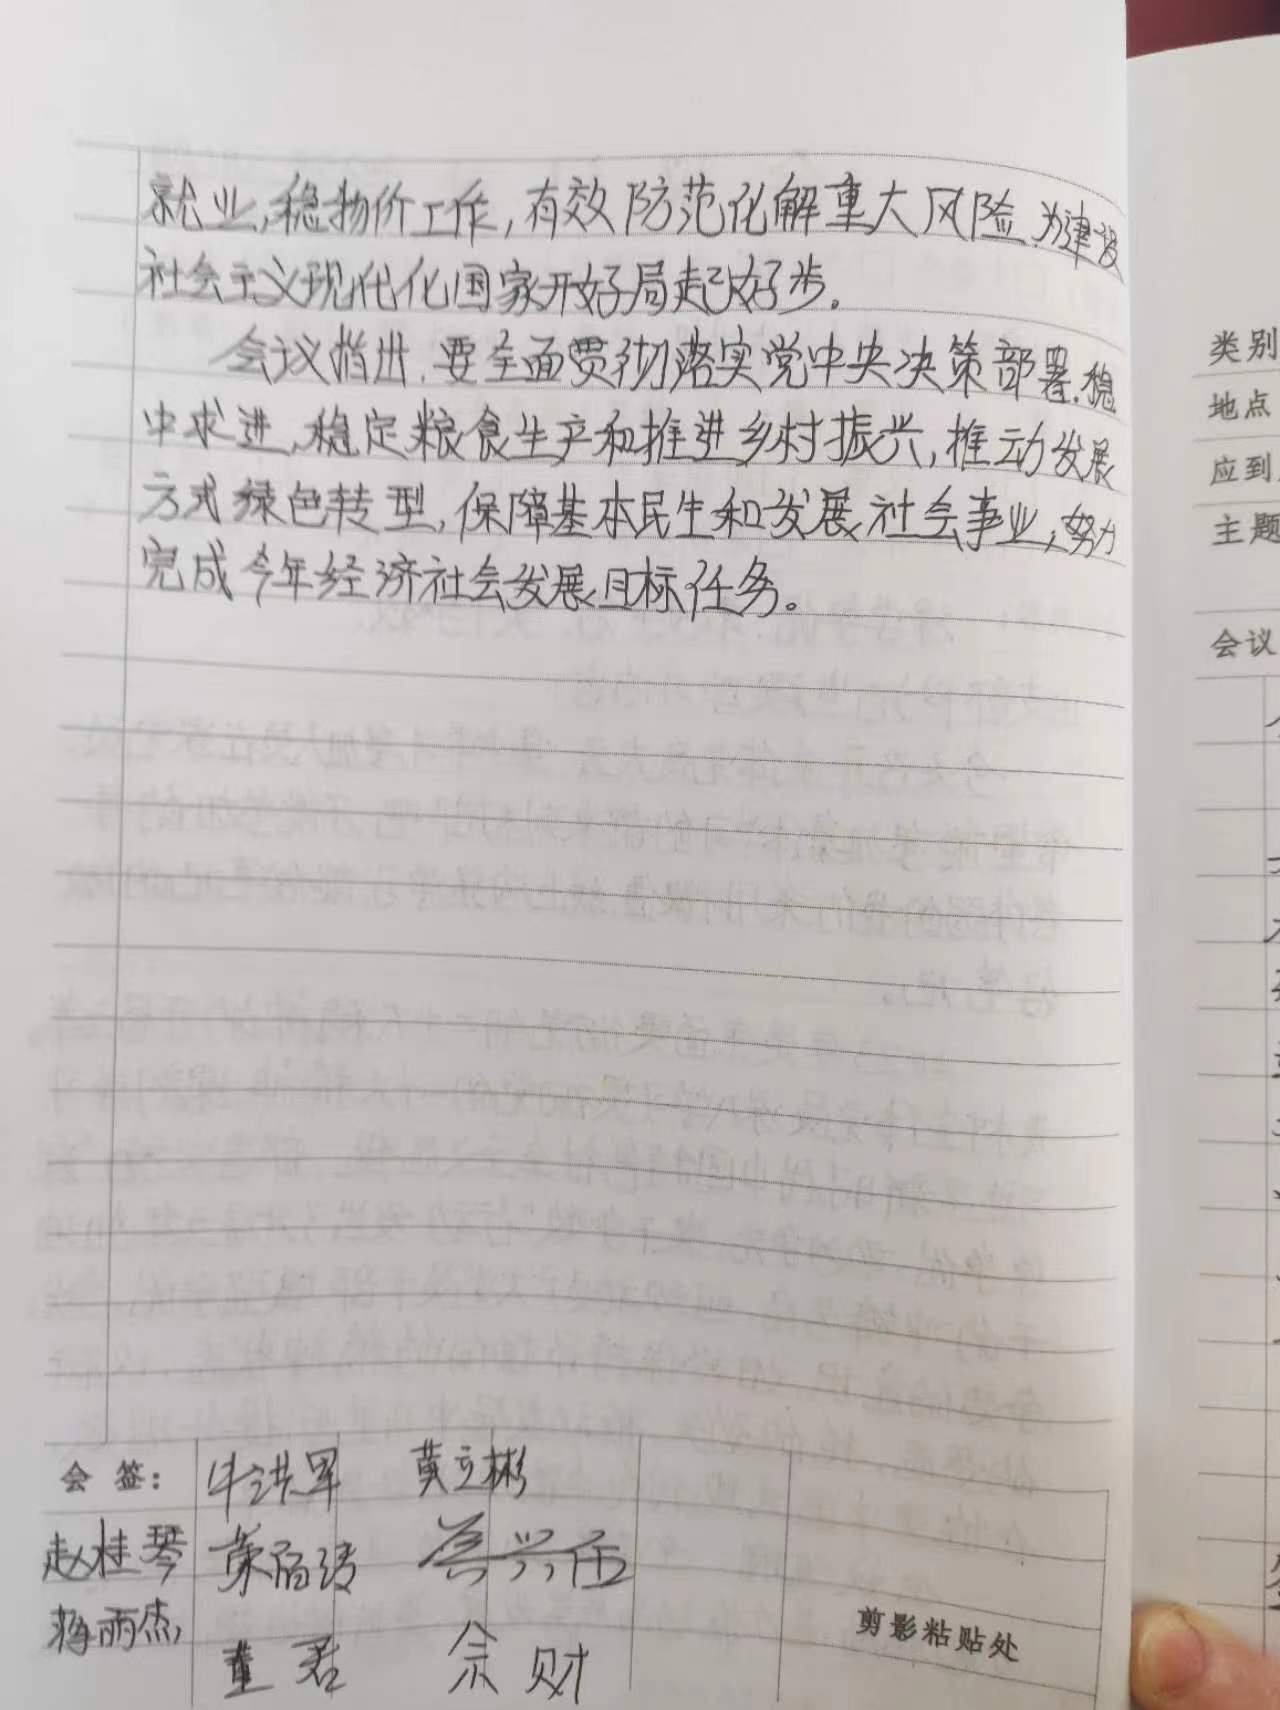 就业,稳物价工作,有效防范化解重大风险,为建设
社会主义现代化国家开好局起好步。
会议指出,要全面贯彻落实党中央决策部署,稳
中求进,稳定粮食生产和推进乡村振兴,推动发展
方式绿色转型,保障基本民生和发展社会事业,努力
完成今年经济社会发展目标任务。
会 签:
牛洪军 黄立彬
赵桂琴
兴伍
蒋雨杰
董君 余财
剪影粘贴处
类别
地点
应到
主题
会议